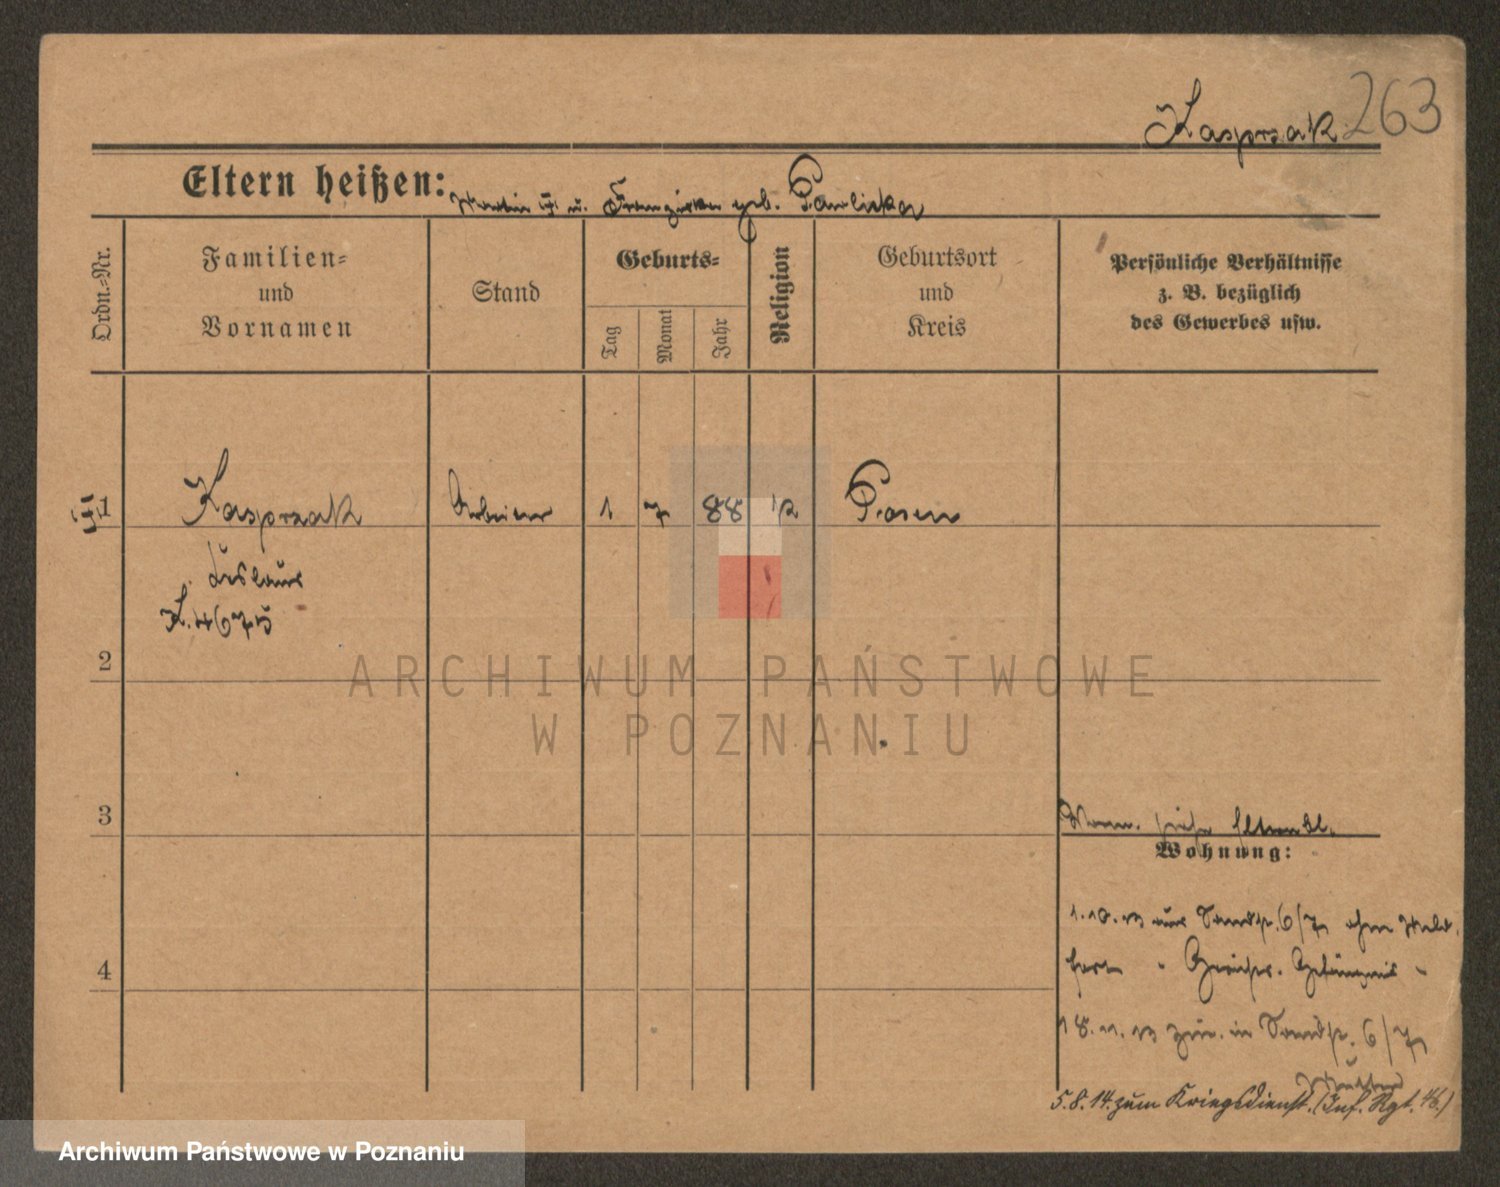 Kasprzak 263
Eltern heißen: Martin u. Franziska geb. Pawlicka
Ordn.-Nr.
Familien-
und
Vornamen
Stand
Geburts-
Tag
Monat
Jahr
Religion
Geburtsort
und
Kreis
Persönliche Verhältnisse
z. B. bezüglich
des Gewerbes usw.
1 Kasprzak Arbeiter 1 7 88 k Posen
K. 4675
2
ARCHIWUM PAŃSTWOWE
W POZNANIU
3
siehe
Wohnung:
1.10.13 aus 6/7 ohne
fort Gefängnis
4
18.11.13 zur. in 6/7
Mutter
5.8.14. zum Kriegsdienst. (Inf. Rgt. 46.)
Archiwum Państwowe w Poznaniu